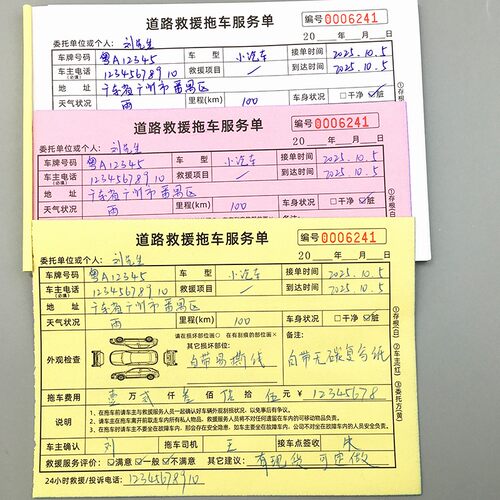 道路救援拖车服务单
编号 0006241
委托单位或个人: 刘先生 20 年 月 日
车牌号码 粤A12345 车型 小汽车 接单时间 2025.10.5
车主电话 (必填) 12345678910 救援项目 / 到达时间 2025.10.5
地址 广东省广州市番禺区
天气状况 雨 里程(km) 100 车身状况 □干净 ☑脏
①存根(白)
道路救援拖车服务单
编号 0006241
委托单位或个人: 刘先生 20 年 月 日
车牌号码 粤A12345 车型 小汽车 接单时间 2025.10.5
车主电话 (必填) 12345678910 救援项目 / 到达时间 2025.10.5
地址 广东省广州市番禺区
天气状况 雨 里程(km) 100 车身状况 □干净 ☑脏
①存根(白)
道路救援拖车服务单
编号 0006241
委托单位或个人: 刘先生 20 年 月 日
车牌号码 粤A12345 车型 小汽车 接单时间 2025.10.5
车主电话 (必填) 12345678910 救援项目 / 到达时间 2025.10.5
地址 广东省广州市番禺区
天气状况 雨 里程(km) 100 车身状况 □干净 ☑脏
外观检查 请在损坏部位画○ 在有刮痕的部位画× 备注:
其它损坏部位:
自带易撕线 自带无碳复写纸
拖车费用 壹万贰仟叁佰 拾伍元 ¥ 12345678
说明
1、在拖车前请车主与救援服务人员一起确认好车辆外观刮损状况,以免事后有争议。
2、请车主在拖车离开前取走车内所有私人物品。救援服务人员将不对任何遗留在车内的可移动物品负责。
3、在拖车时请车主不要坐在故障车内,那会存在安全隐患。如车主要坐在故障车内,公司不对坐在故障车内的人员安全负责。
车主确认 刘 拖车司机 王 接车点签收 朱
救援服务评价: ☑满意 ☑一般 ☑不满意 其它建议: 有现货可定做
24小时救援/投诉电话: 12345678910
①存根(白) ②车主(红) ③委托方(黄)